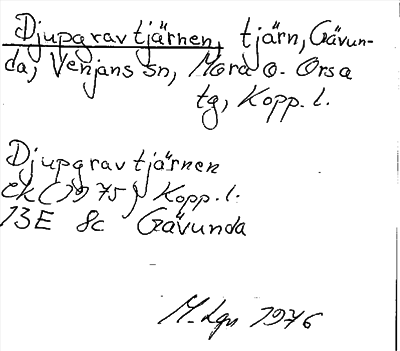 Djupgravtjärnen, tjärn, Gävun-
da, Venjans sn, Mora o. Orsa
tg, Kopp. l.
Djupgravtjärnen
ek (1975) Kopp. l.
13E 8c Gävunda
M. Lgn 1976